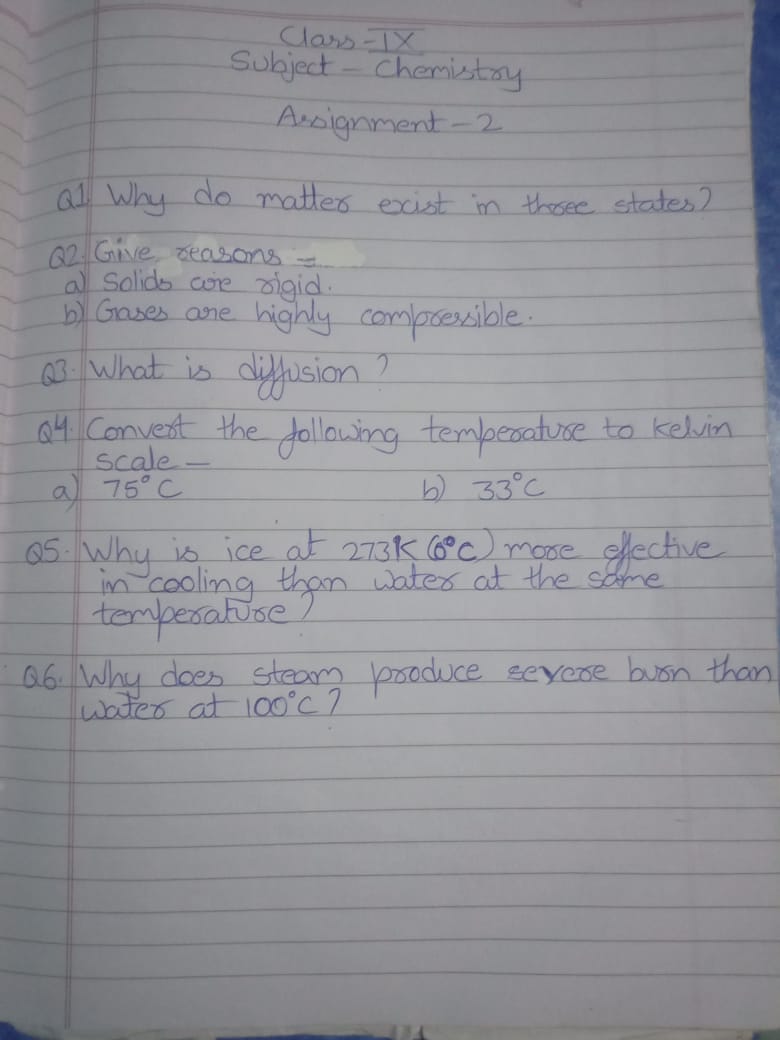 Class - IX
Subject - Chemistry
Assignment - 2
Q1 Why do matter exist in three states?
Q2. Give reasons -
a) Solids are rigid.
b) Gases are highly compressible.
Q3. What is diffusion?
Q4. Convert the following temperature to kelvin
scale -
a) 75°C b) 33°C
Q5. Why is ice at 273K (0°C) more effective
in cooling than water at the same
temperature?
Q6. Why does steam produce severe burn than
water at 100°C?